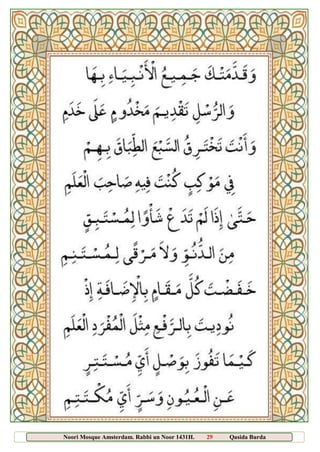 وَقَدَّمَتْكَ جَمِيعُ الْأَنْبِيَاءِ بِهَا
وَالرُّسْلِ تَقْدِيمَ مَخْدُومٍ عَلَى خَدَمِ
وَأَنْتَ تَخْتَرِقُ السَّبْعَ الطِّبَاقَ بِهِمْ
فِي مَوْكِبٍ كُنْتَ فِيهِ صَاحِبَ الْعَلَمِ
حَتَّى إِذَا لَمْ تَدَعْ شَأْوًا لِمُسْتَبِقٍ
مِنَ الدُّنُوِّ وَلَا مَرْقًى لِمُسْتَنِمِ
خَفَضْتَ كُلَّ مَقَامٍ بِالْإِضَافَةِ إِذْ
نُودِيتَ بِالرَّفْعِ مِثْلَ الْمُفْرَدِ الْعَلَمِ
كَيْمَا تَفُوزَ بِوَصْلٍ أَيِّ مُسْتَتِرٍ
عَنِ الْعُيُونِ وَسَرٍّ أَيِّ مُكْتَتِمِ
Noori Mosque Amsterdam. Rabbi un Noor 1431H. 29 Qasida Burda